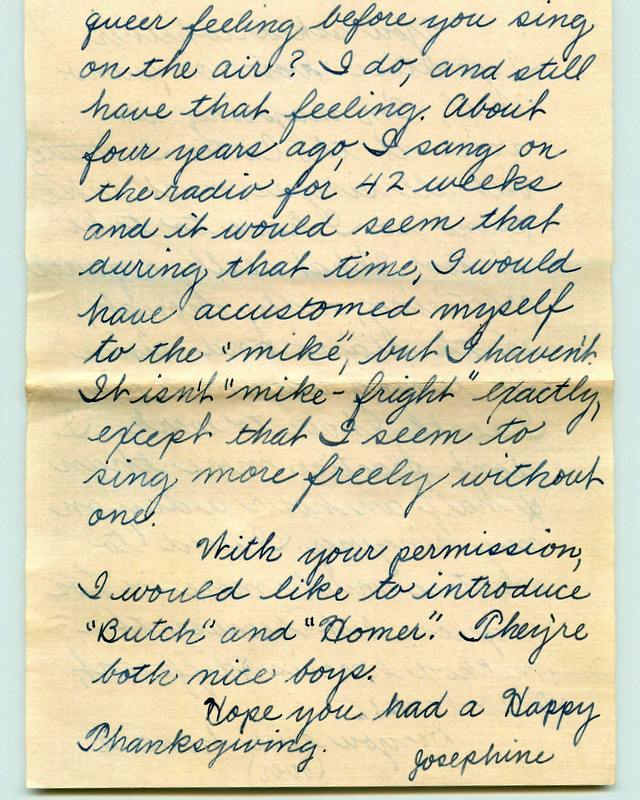 queer feeling before you sing
on the air? I do, and still
have that feeling. About
four years ago, I sang on
the radio for 42 weeks
and it would seem that
during that time, I would
have accustomed myself
to the "mike", but I haven't.
It isn't "mike-fright" exactly,
except that I seem to
sing more freely without
one.
With your permission,
I would like to introduce
"Butch" and "Homer". They're
both nice boys.
Hope you had a Happy
Thanksgiving.
Josephine